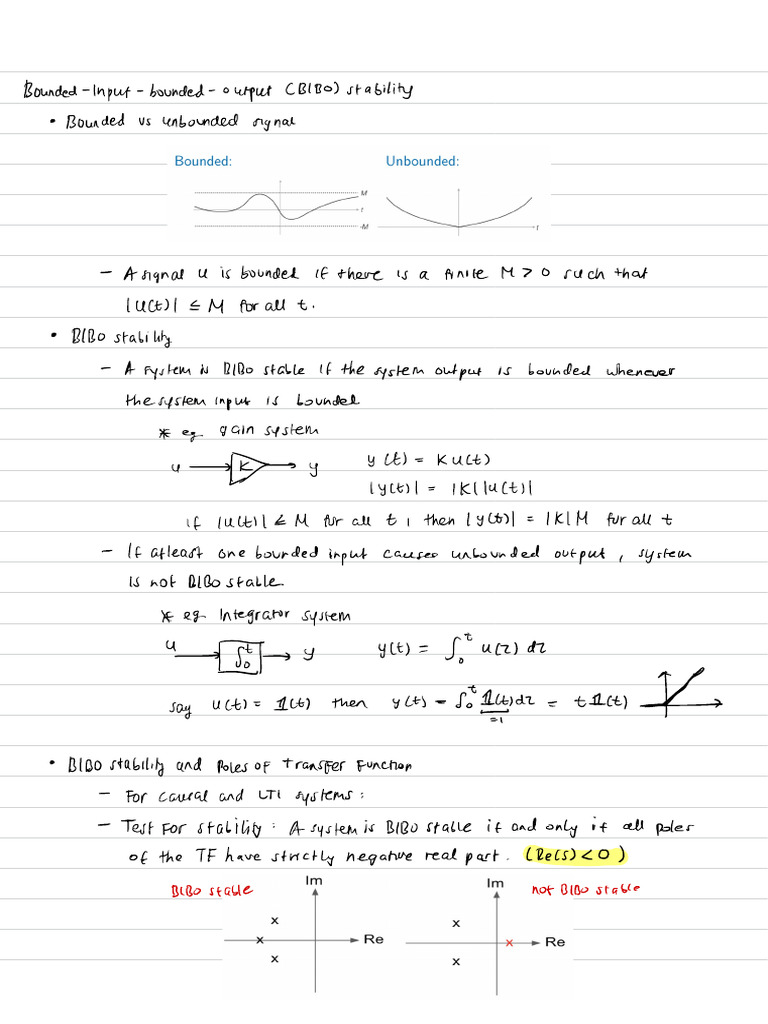 Bounded-Input-bounded-output (BIBO) stability
• Bounded vs unbounded signal
Bounded: Unbounded:
M
t
-M
t
– A signal u is bounded if there is a finite M > 0 such that
|u(t)| ≤ M for all t.
• BIBO stability
– A system is BIBO stable if the system output is bounded whenever
the system input is bounded
* eg gain system
u K y y(t) = K u(t)
|y(t)| = |K||u(t)|
if |u(t)| ≤ M for all t, then |y(t)| = |K|M for all t
– If atleast one bounded input causes unbounded output, system
is not BIBO stable.
* eg Integrator system
u ∫₀ᵗ y y(t) = ∫₀ᵗ u(τ) dτ
say u(t) = 𝟙(t) then y(t) = ∫₀ᵗ 𝟙(t) dτ = t 𝟙(t)
=1
• BIBO stability and Poles of Transfer Function
– For causal and LTI systems:
– Test For stability: A system is BIBO stable if and only if all poles
of the TF have strictly negative real part. (Re(s) < 0)
BIBO stable Im Im not BIBO stable
x x
x Re x Re
x x